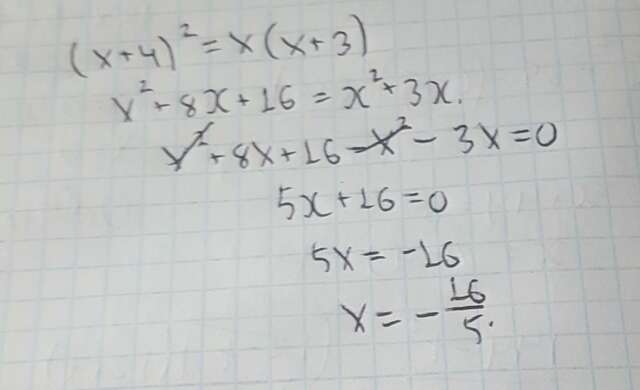 (x+4)² = x(x+3)
x² + 8x + 16 = x² + 3x.
x² + 8x + 16 - x² - 3x = 0
5x + 16 = 0
5x = -16
x = - 16/5.